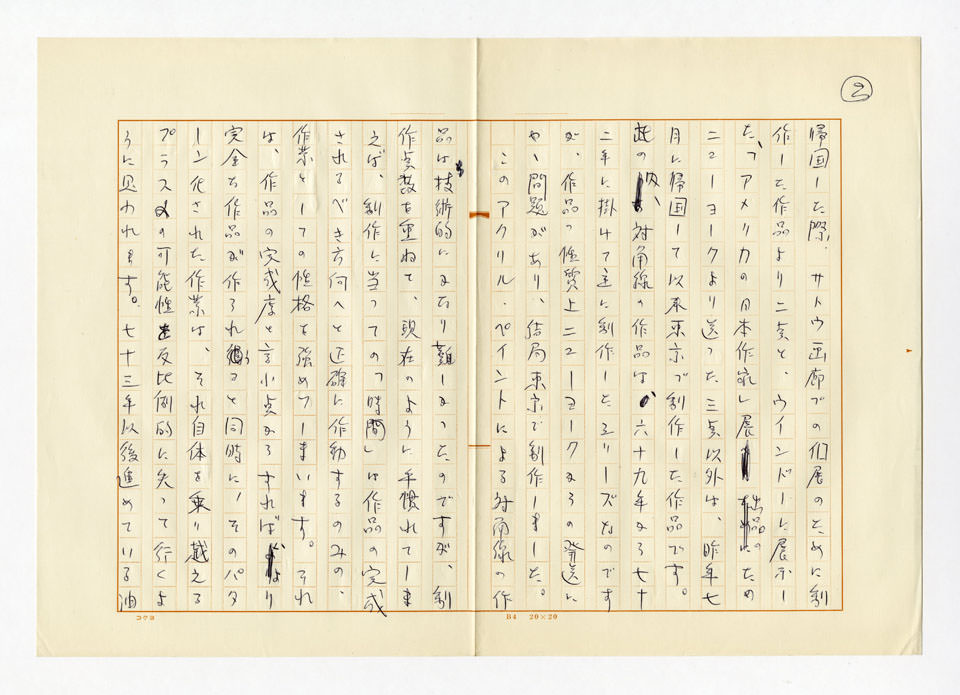 ②
帰国した際、サトウ画廊での個展のために制
作した作品より二点と、ウインドーに展示し
た、「アメリカの日本作家」展出品のため
ニューヨークより送った三点以外は、昨年七
月に帰国して以来東京で制作した作品です。
此の内、対角線の作品は、六十九年から七十
二年に掛けて主に制作したシリーズなのです
が、作品の性質上ニューヨークからの発送に
や、問題があり、結局東京で制作しました。
このアクリル・ペイントによる対角線の作
品は技術的にかなり難しかったのですが、制
作点数を重ねて、現在のように手慣れてしま
えば、制作に当っての「時間」は作品の完成
されるべき方向へと正確に作動するのみの、
作業としての性格を強めてしまいます。それ
は、作品の完成度と言う点からすれば、より
完全な作品が作られ得ると同時に、そのパタ
ーン化された作業は、それ自体を乗り越える
プラスの可能性を反比例的に失って行くよ
うに思われます。七十三年以後進めている油
コクヨ
B4 20×20